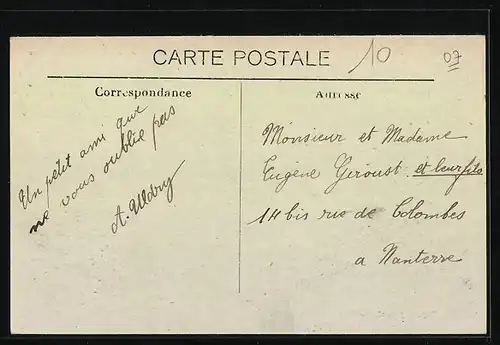 CARTE POSTALE
10
07
Correspondance
Adresse
Un petit ami que
ne vous oublie pas
Monsieur et Madame
Eugène Geroust et leur fils
14 bis rue de Colombes
a Nanterre